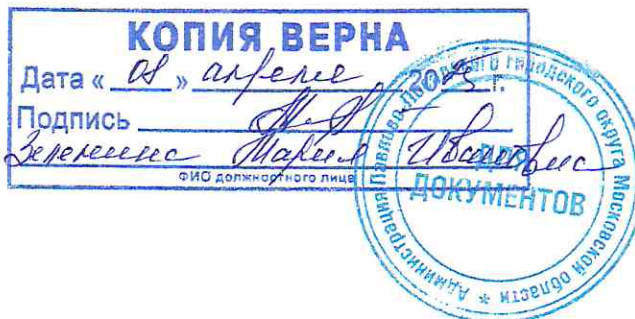 КОПИЯ ВЕРНА
Дата « 08 » апреля 2025 г.
Подпись
Мария Ивановна
ФИО должностного лица
Администрация Павлово-Посадского городского округа Московской области *
ДЛЯ
ДОКУМЕНТОВ